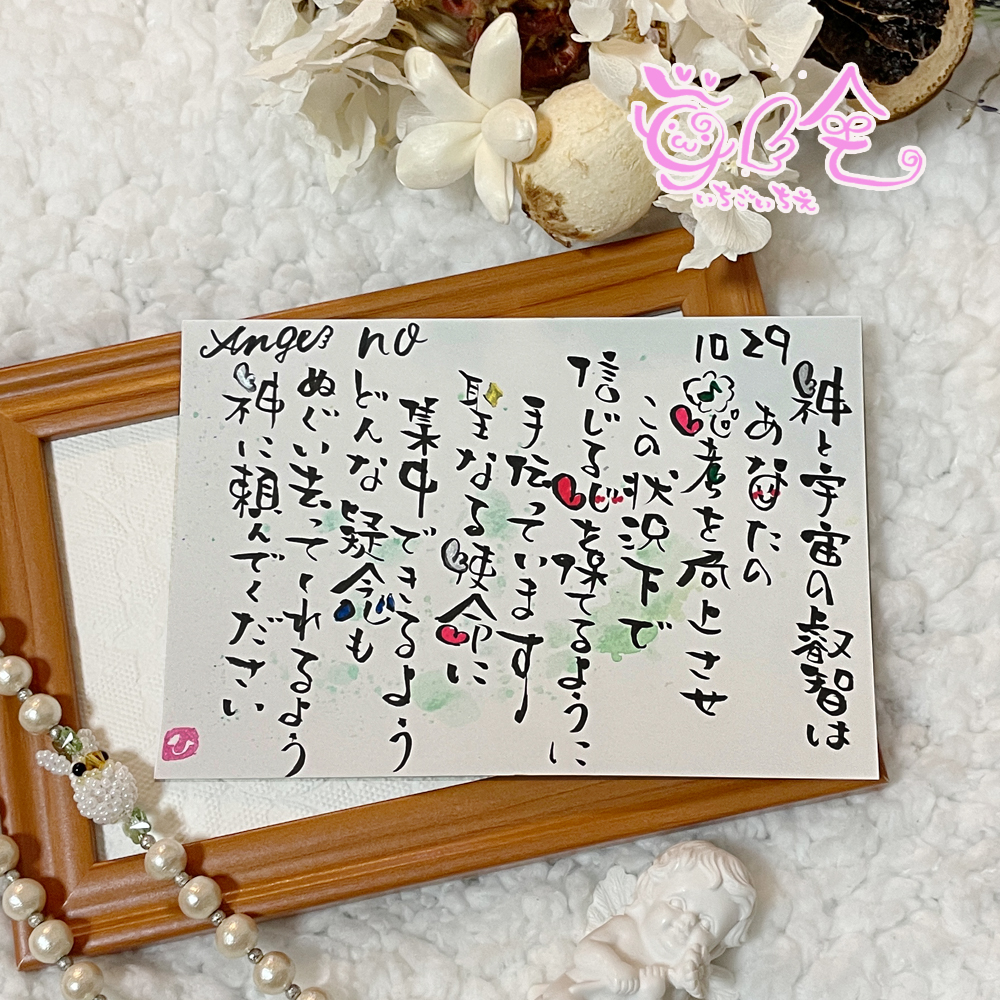 いちごいちえ
Angel no
10 29
神と宇宙の叡智は
あなたの
思考を向上させ
この状況下で
信じる心を保てるように
手伝っています
聖なる使命に
集中できるよう
どんな疑念も
ぬぐい去ってくれるよう
神に頼んでください